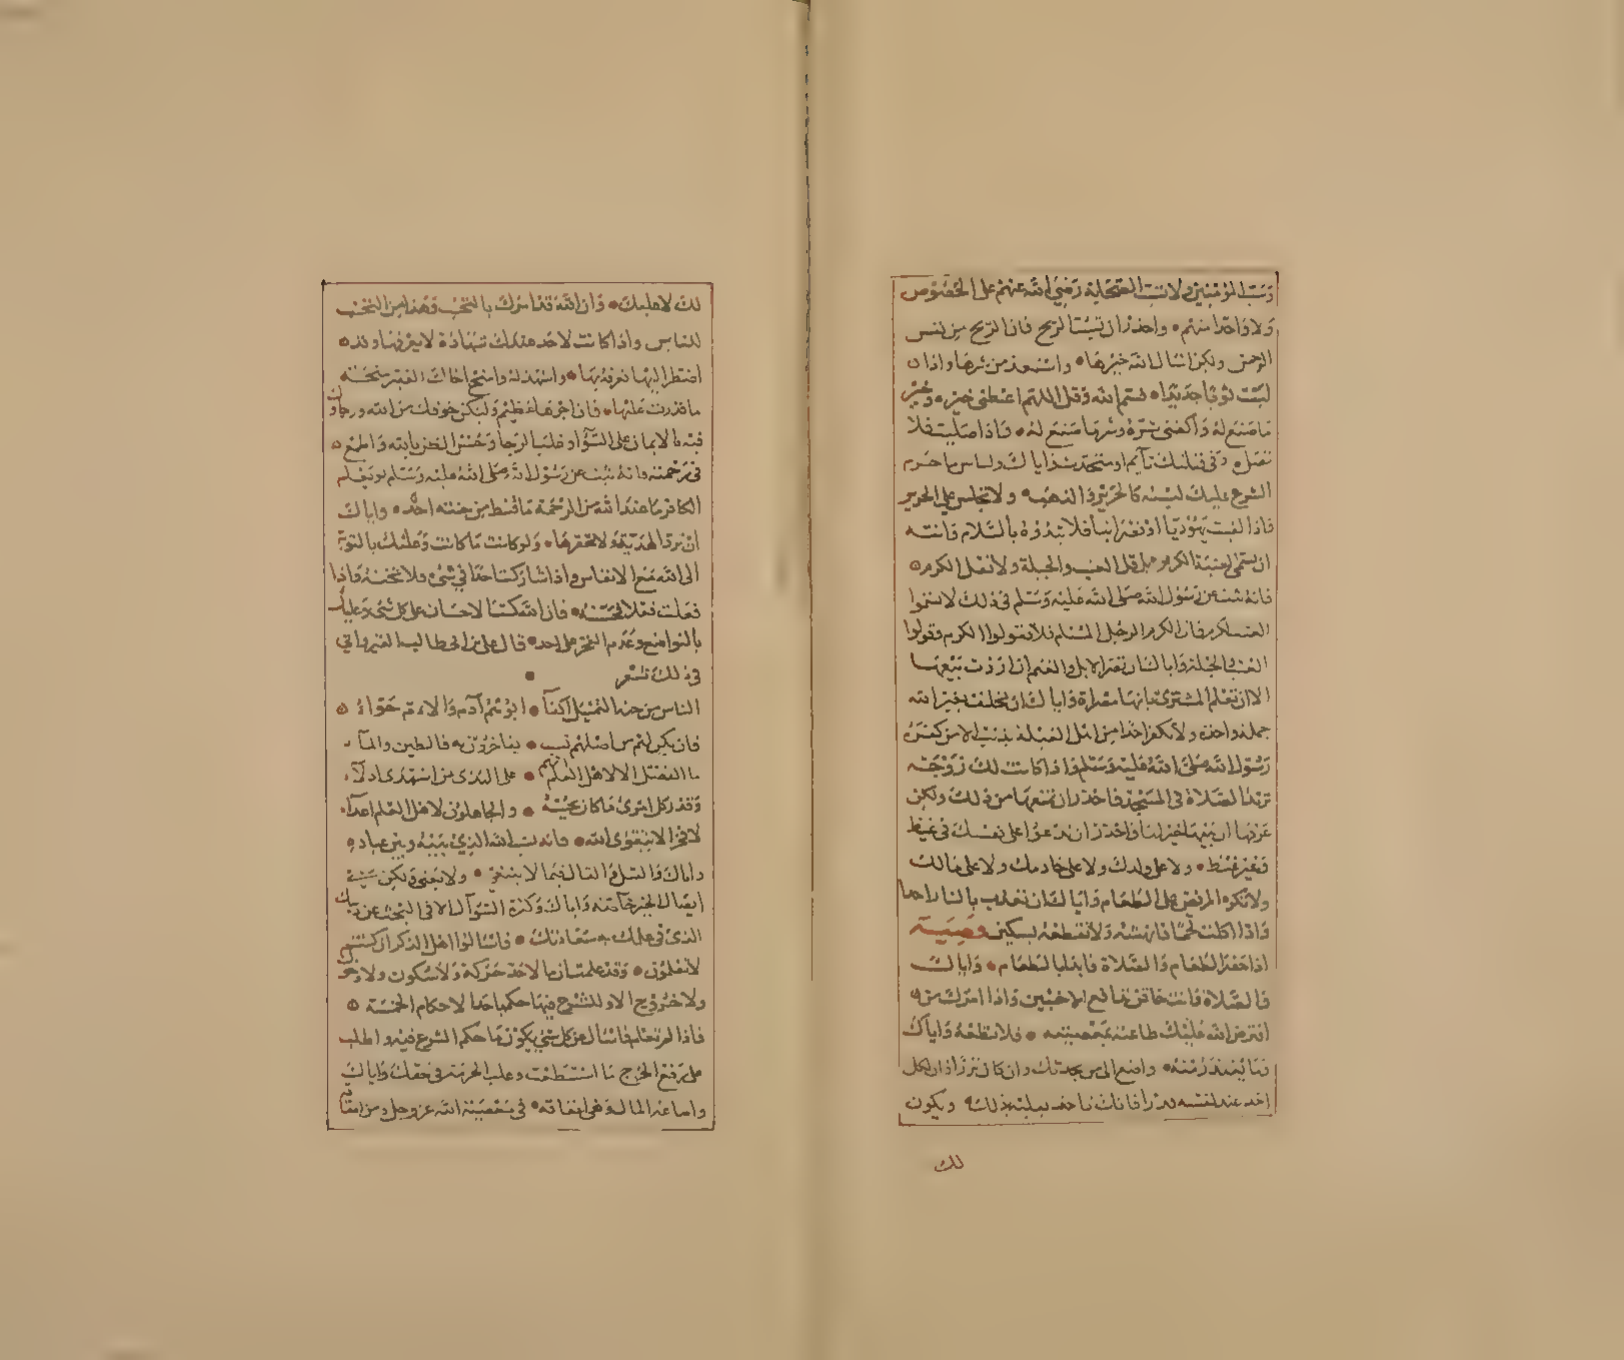 وسب المؤمنين ولا تسب الصحابة رضي الله عنهم على الخصوص
ولا واحدا منهم واحذر ان تسب الريح فان الريح من نفس
الرحمن ولكن اسال الله خيرها واستعذ من شرها واذا
لبست ثوبا جديدا فسم الله وقل اللهم اعطني خيره وخير
ما صنع له واكفني شره وشر ما صنع له واذا صليت فلا
تصل وفي قبلتك نايم او متحدث واياك ولباس ما حرم
الشرع عليك لبسه كالحرير والذهب ولا تجلس على الحرير
فاذا لقيت يهوديا او نصرانيا فلا تبدؤه بالسلام فانته
ان تسمى العنبة الكرم بل قل العنب والحبلة ولا تقل الكرم
فانه ثبت عن رسول الله صلى الله عليه وسلم في ذلك لا تسموا
العنب الكرم فان الكرم الرجل المسلم فلا تقولوا الكرم وقولوا
العنب والحبلة واياك ان تصر الابل والغنم اذا اردت بيعها
الا ان تعلم المشتري بانها مصراة واياك ان تحلف بغير الله
جملة واحدة ولا تكفر احدا من اهل القبلة بذنب الا من كفره
رسول الله صلى الله عليه وسلم واذا كانت لك زوجة
تريد الصلاة في المسجد فاحذر ان تمنعها من ذلك ولكن
عرفها ان بيتها خير لها واحذر ان تدعوا على نفسك في غيظ
وغير غيظ ولا على ولدك ولا على خادمك ولا على مالك
ولا تكره المريض على الطعام واياك ان تعذب بالنار احدا
واذا اكلت لحما فانهشه ولا تقطعه بسكين وصيـة
اذا حضر الطعام والصلاة فابدا بالطعام واياك
والصلاة وانت حاقن تدافع الاخبثين واذا امرك من
افترض الله عليك طاعته بمعصيته فلا تطعه واياك
وما يعتذر منه واصغ الى من يحدثك وان كان نزرا فان لكل
احد عند نفسه قدرا فانك تاخذ قلبه بذلك ويكون
لك
لك لا عليك وان الله قد امرك بالتحبب وهذا من التحبب
للناس واذا كانت لاحد عندك شهادة لا يعرفها وقد
اضطر اليها فعرفه بها واشهد له وامنح اخاك الفقير منحة
ما قدرت عليها فان اجرها عظيم وليكن خوفك من الله ورجاؤك
فيه بالايمان على السواء وغلب الرجا وحسن الظن بالله واطمع
في رحمته فانه ثبت عن رسول الله صلى الله عليه وسلم لو يعلم
الكافر ما عند الله من الرحمة ما قنط من جنته احد واياك
ان ترد الهدية ولا تحقرها ولو كانت ما كانت وعليك بالتوبة
الى الله مع الانفاس واذا شاركت احدا في شيء فلا تخنه واذا
فعلت فعلا فحسنه فان الله كتب الاحسان على كل شيء وعليك
بالتواضع وعدم الفخر على احد قال علي بن ابي طالب القيرواني
في ذلك شعر
الناس من جهة التمثيل اكفآء ابوهم آدم والام حواء
فان يكن لهم من اصلهم نسب يفاخرون به فالطين والمآء
ما الفضل الا لاهل العلم انهم على الهدى لمن استهدى ادلآء
وقدر كل امرئ ما كان يحسنه والجاهلون لاهل العلم اعدآء
لا فخر الا بتقوى الله فانه نسب الله الذي بينه وبين عباده
واياك والقيل والقال فيما لا ينبغي ولا يعني ولكن سبيله
ايصال الخير خاصة واياك وكثرة السؤال الا في البحث عن دينك
الذي في علمك به سعادتك فاسالوا اهل الذكر ان كنتم
لا تعلمون وقد علمت ان ما لاحد حركة ولا سكون ولا دخول
ولا خروج الا وللشرع فيها حكم باحد الاحكام الخمسة
فاذا لم تعلم فاسال عن كل شيء يكون ما حكم الشرع فيه واطلب
على رفع الحرج ما استطعت وغلب الحرمة في حقك واياك
واضاعة المال وهي انفاقه في معصية الله عز وجل ومن اضاعته